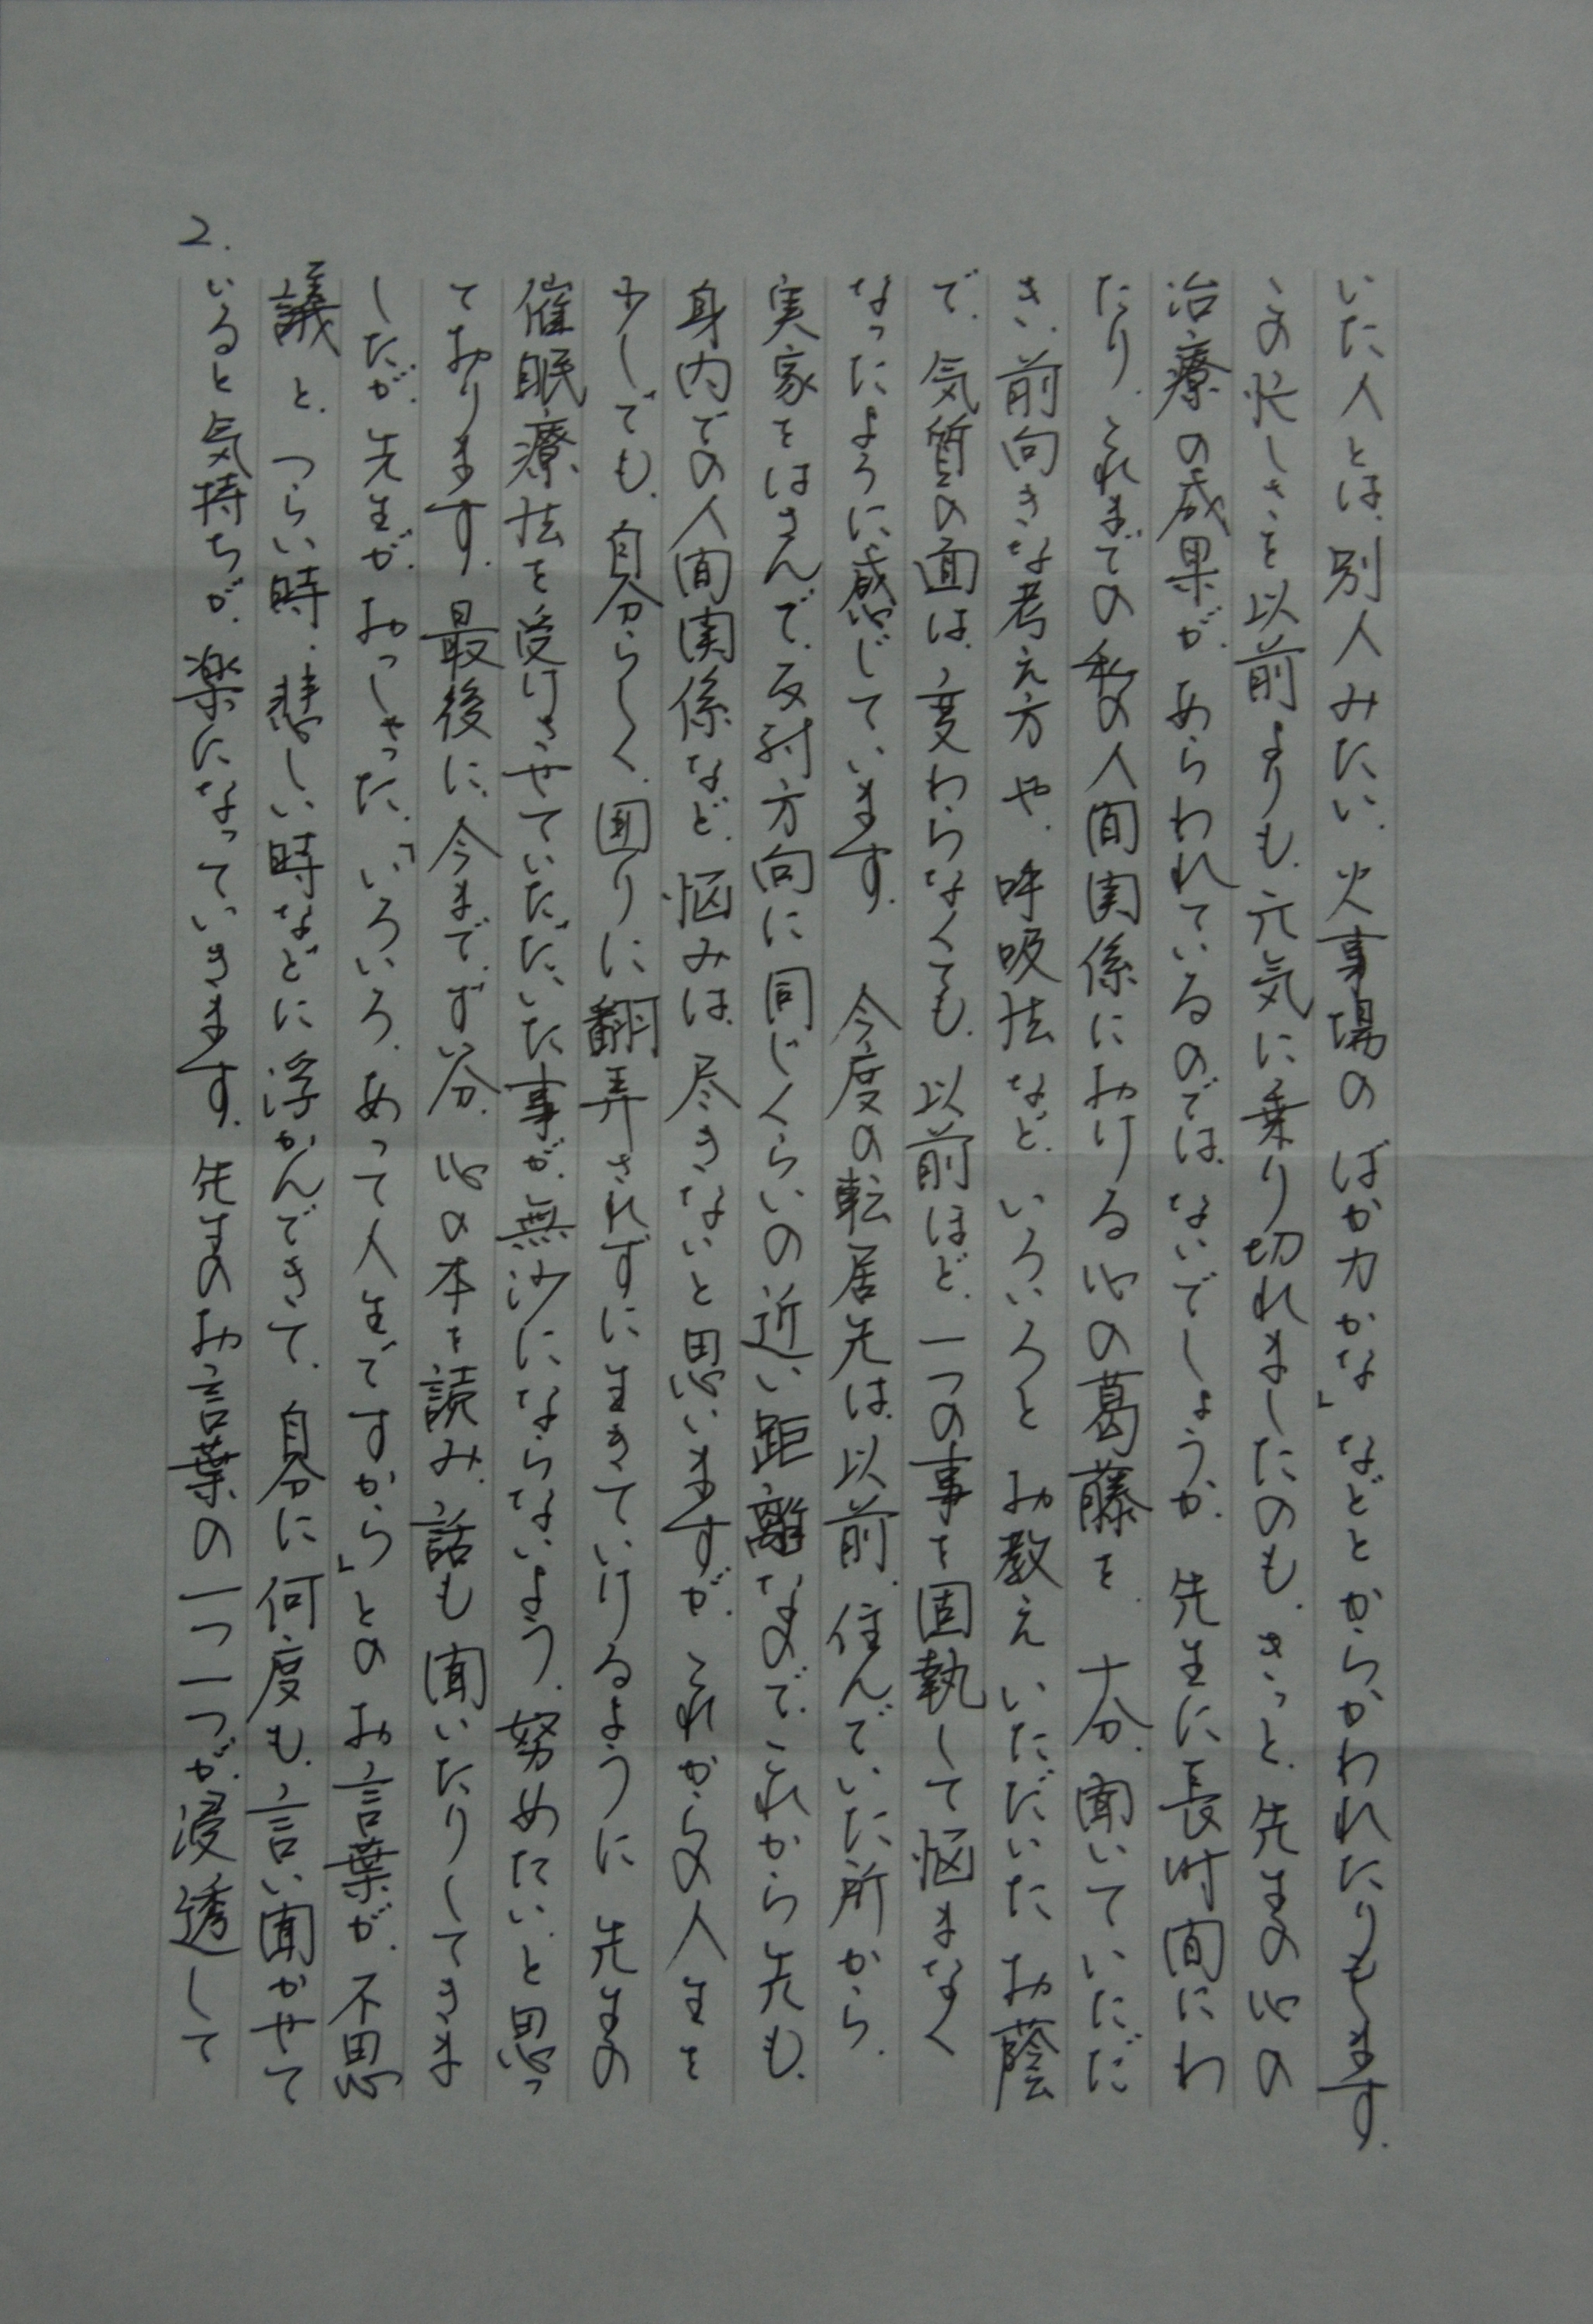 いた人とは、別人みたい。火事場のばか力かな」などとからかわれたりもします。
この忙しさを以前よりも、元気に乗り切れましたのも、きっと、先生の心の
治療の成果が、あらわれているのでは、ないでしょうか。先生に長時間にわ
たり、これまでの私の人間関係における心の葛藤を、十分、聞いていただ
き、前向きな考え方や、呼吸法など、いろいろとお教えいただいたお蔭
で、気質の面は、変わらなくても、以前ほど、一つの事を固執して悩まなく
なったように感じています。　今度の転居先は、以前、住んでいた所から、
実家をはさんで、反対方向に同じくらいの近い距離なので、これから先も、
身内での人間関係など、悩みは、尽きないと思いますが、これからの人生を
少しでも、自分らしく、囲りに翻弄されずに生きていけるように先生の
催眠療法を受けさせていただいた事が、無沙にならないよう、努めたい、と思っ
ております。最後に、今まで、ずい分、心の本を読み、話も聞いたりしてきま
したが、先生が、おっしゃった、「いろいろ、あって人生ですから」とのお言葉が、不思
議と、つらい時、悲しい時などに浮かんできて、自分に何度も、言い聞かせて
いると気持ちが、楽になっていきます。先生のお言葉の一つ一つが、浸透して
2.